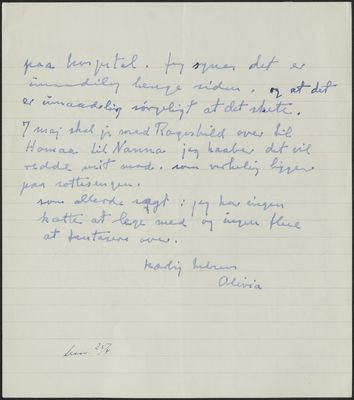 paa hospital. Jeg synes det er
umaadelig længe siden. og at det
er umaadelig sørgeligt at det skete.
7 maj skal jeg med Ragnhild over til
til Nanna jeg haaber det vil
redde mit mod. som virkelig ligger
paa
som allerede sagt: jeg har ingen
katte at lege med og ingen flue
at fantasere over.
kærlig hilsen
Olivia